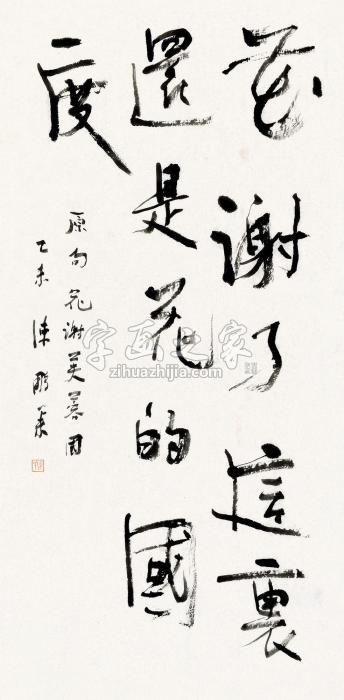 花謝了這裏
還是花的國
度
原句花謝芙蓉國
乙未陳鵬舉
字画之家
zihuazhijia.com